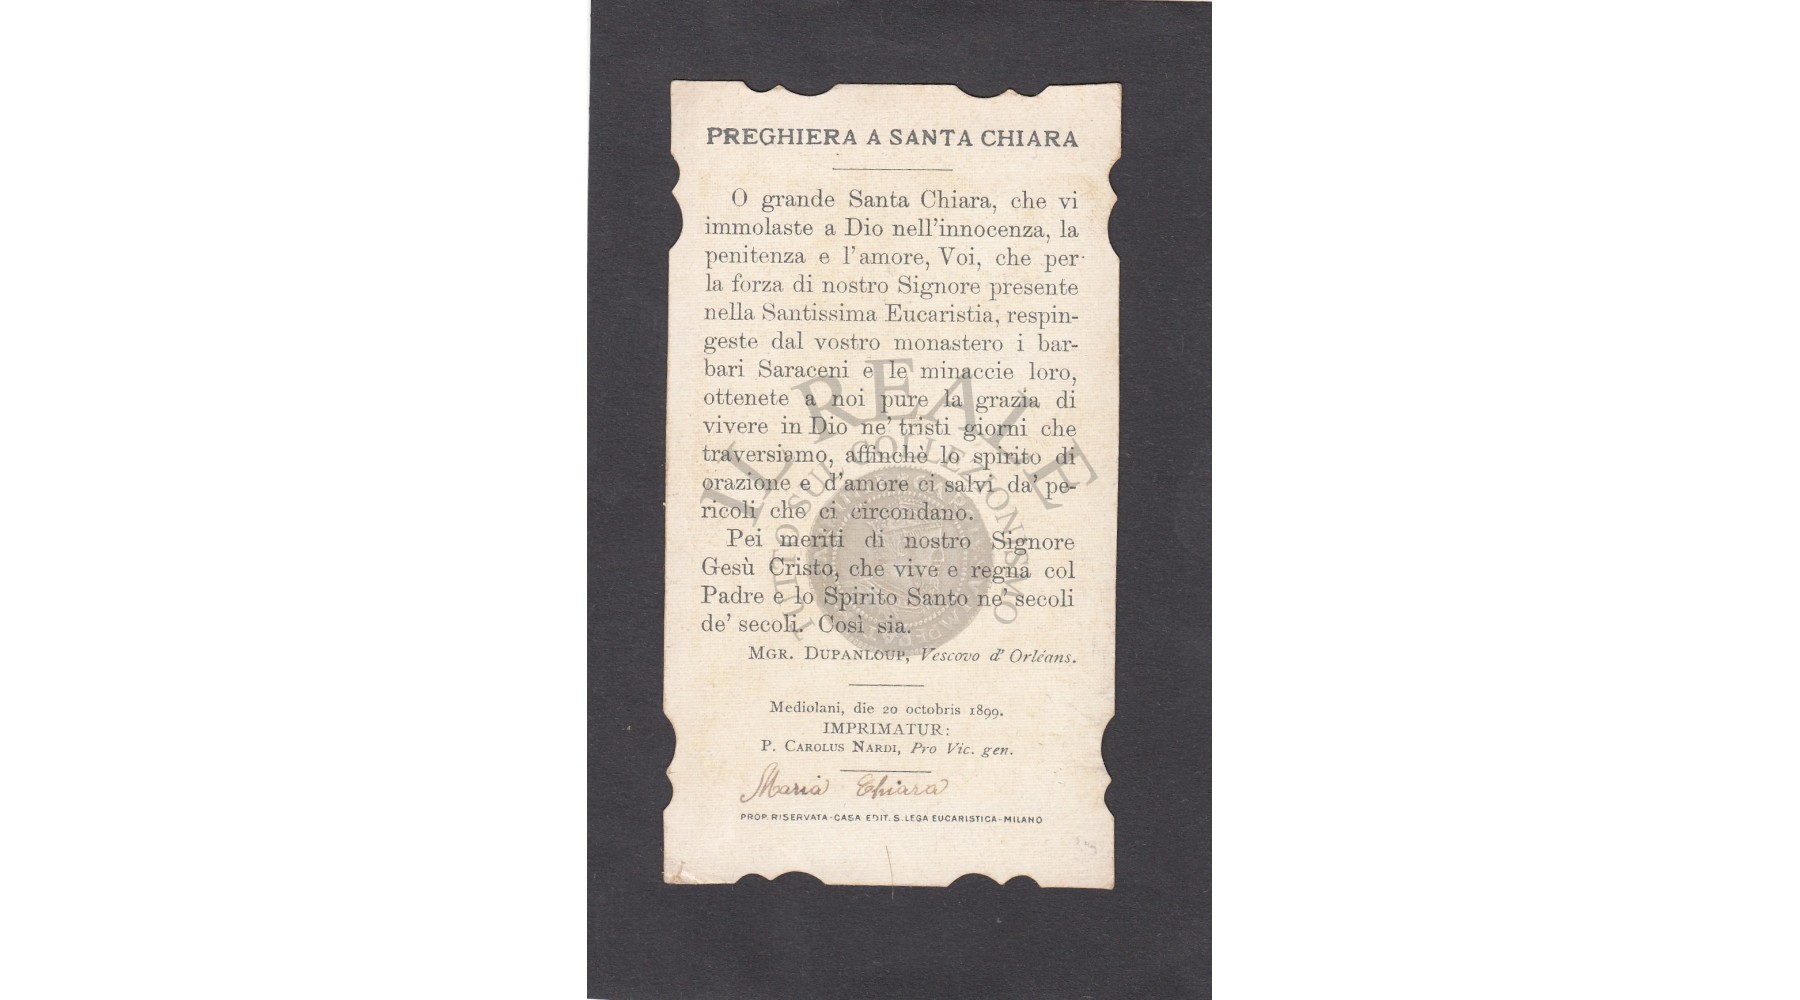 PREGHIERA A SANTA CHIARA
O grande Santa Chiara, che vi
immolaste a Dio nell'innocenza, la
penitenza e l'amore, Voi, che per
la forza di nostro Signore presente
nella Santissima Eucaristia, respin-
geste dal vostro monastero i bar-
bari Saraceni e le minaccie loro,
ottenete a noi pure la grazia di
vivere in Dio ne' tristi giorni che
traversiamo, affinchè lo spirito di
orazione e d'amore ci salvi da' pe-
ricoli che ci circondano.
Pei meriti di nostro Signore
Gesù Cristo, che vive e regna col
Padre e lo Spirito Santo ne' secoli
de' secoli. Così sia.
MGR. DUPANLOUP, Vescovo d' Orléans.
Mediolani, die 20 octobris 1899.
IMPRIMATUR:
P. CAROLUS NARDI, Pro Vic. gen.
Maria Chiara
PROP. RISERVATA-CASA EDIT. S. LEGA EUCARISTICA-MILANO
IL REALE
TUTTO SUL COLLEZIONISMO